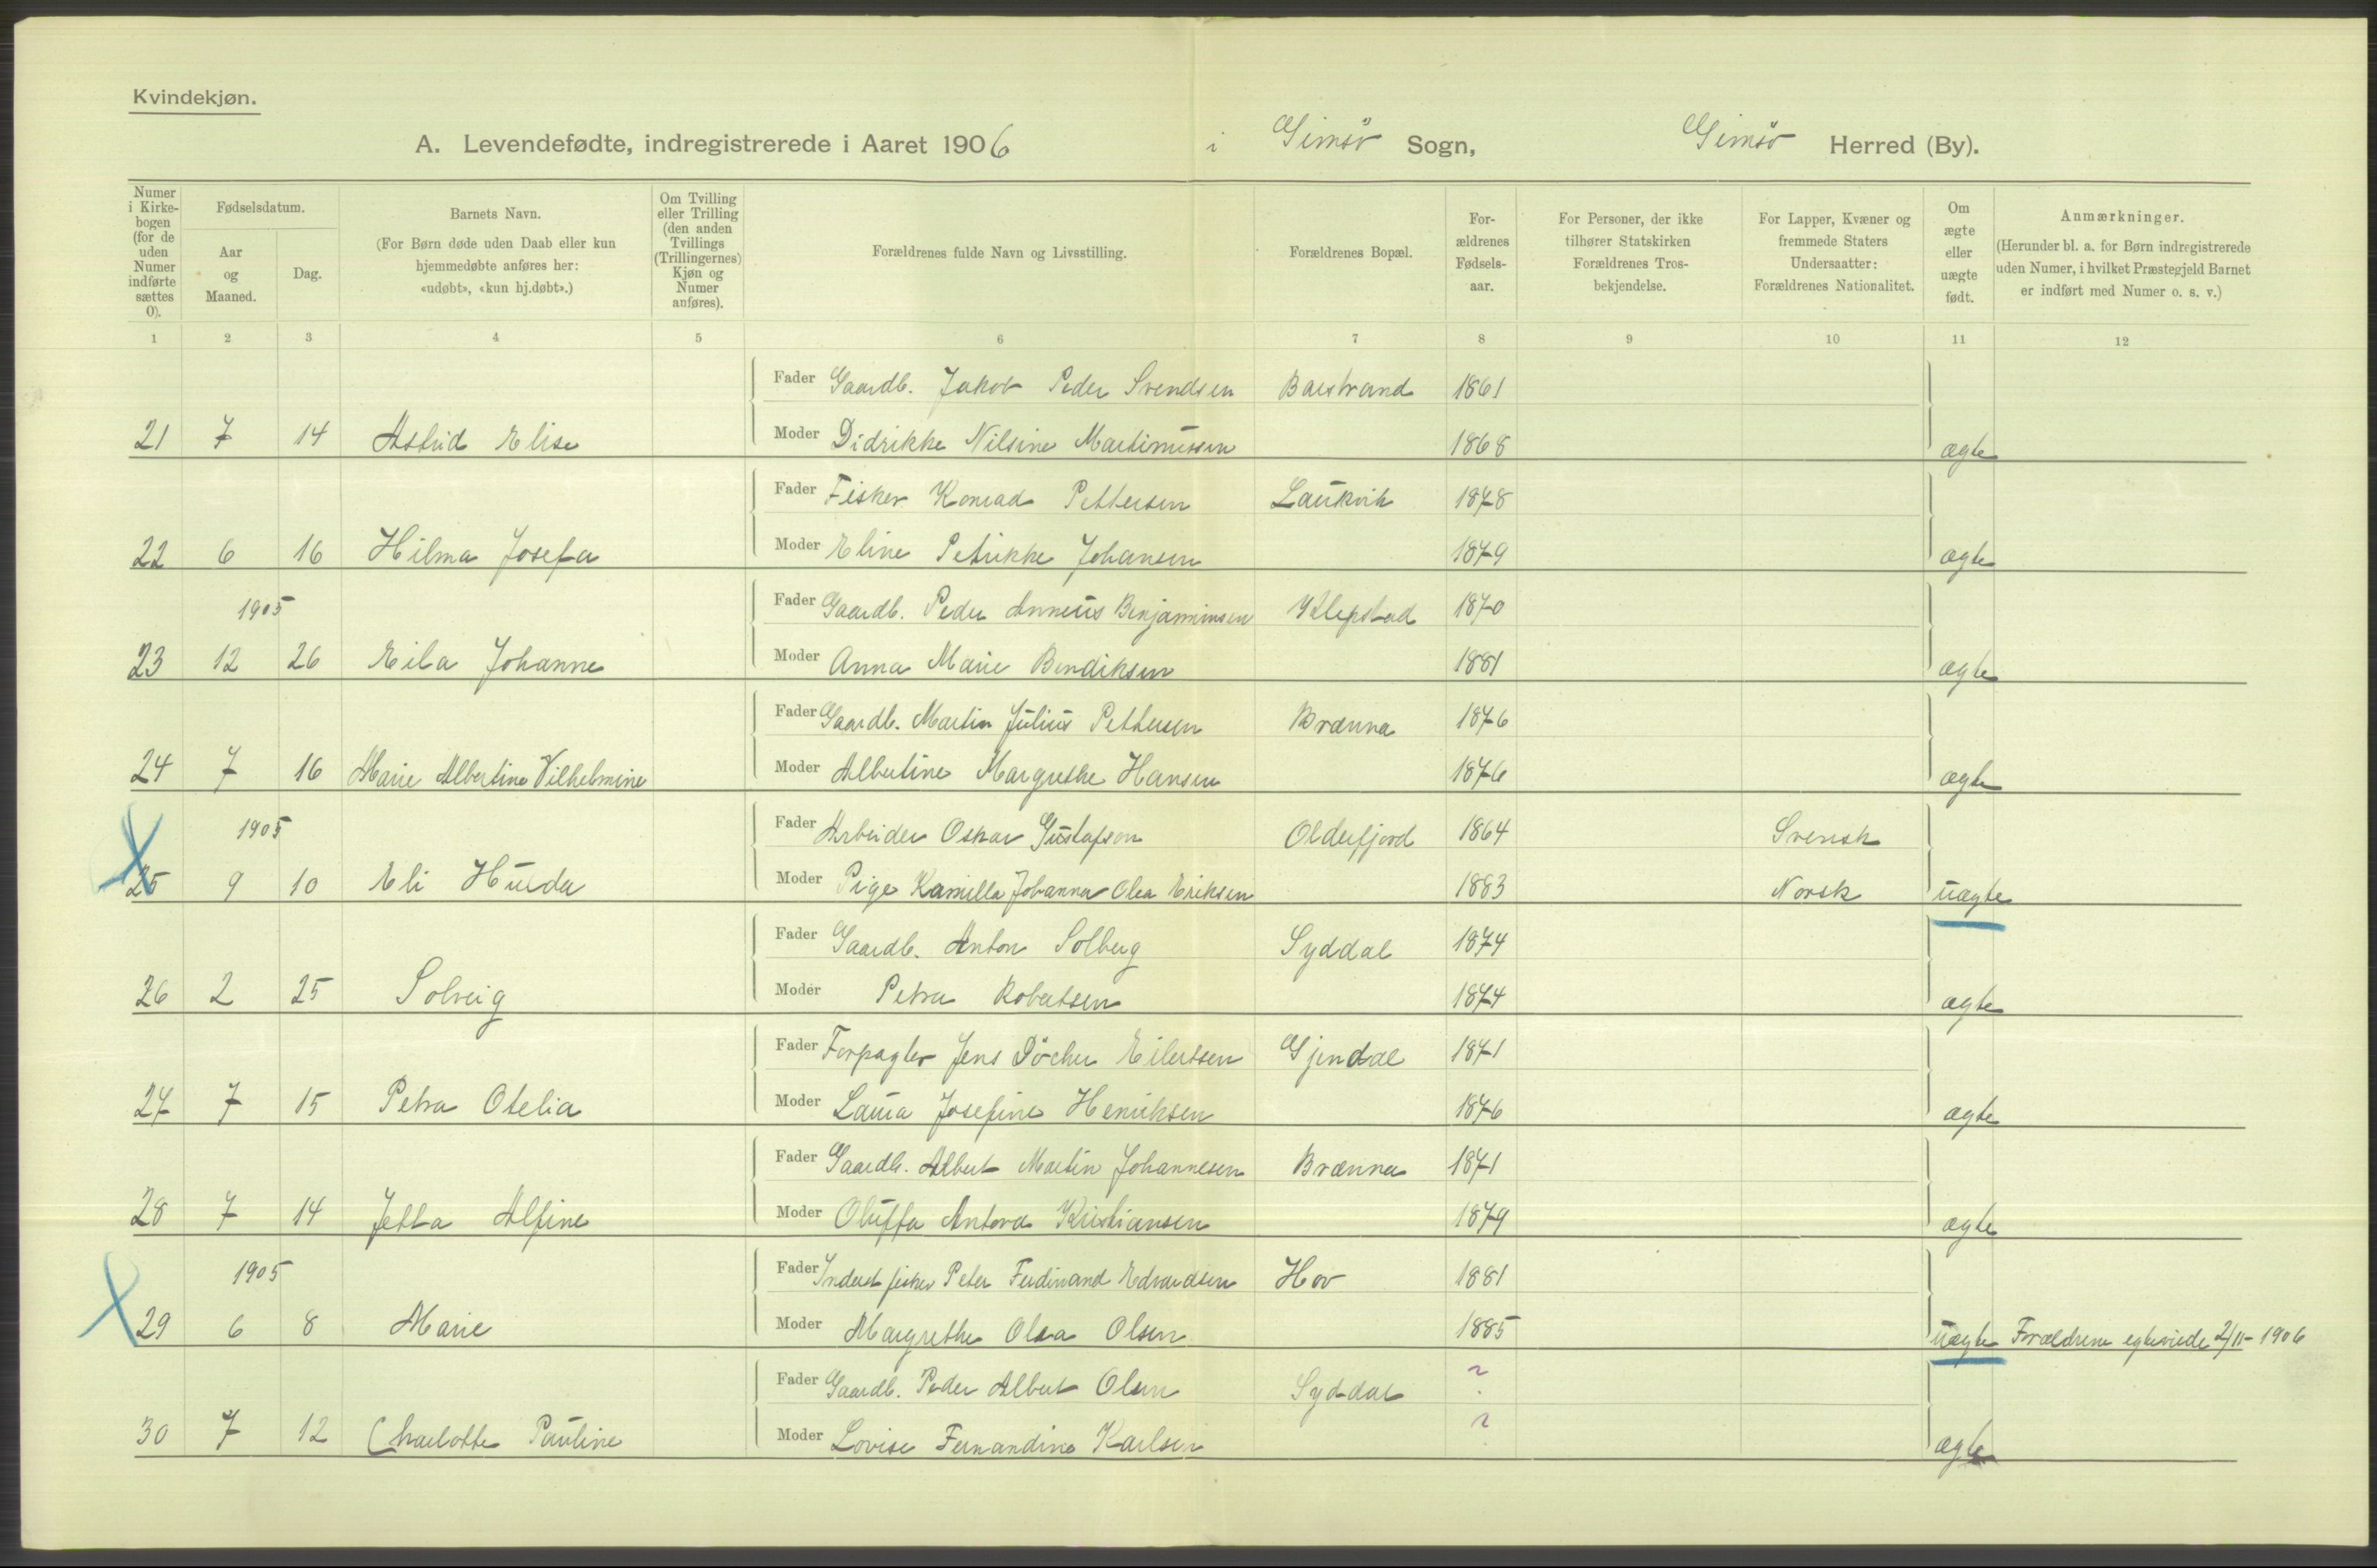 Kvindekjøn.
A. Levendefødte, indregistrerede i Aaret 1906 i Gimsø Sogn, Gimsø Herred (By).
Numer i Kirkebogen (for de uden Numer indførte sættes 0).
Fødselsdatum.
Aar og Maaned.
Dag.
Barnets Navn.
(For Børn døde uden Daab eller kun hjemmedøbte anføres her: «udøbt», «kun hj.døbt».)
Om Tvilling eller Trilling (den anden Tvillings (Trillingernes) Kjøn og Numer anføres).
Forældrenes fulde Navn og Livsstilling.
Forældrenes Bopæl.
Forældrenes Fødselsaar.
For Personer, der ikke tilhører Statskirken Forældrenes Trosbekjendelse.
For Lapper, Kvæner og fremmede Staters Undersaatter: Forældrenes Nationalitet.
Om ægte eller uægte født.
Anmærkninger.
(Herunder bl. a. for Børn indregistrerede uden Numer, i hvilket Præstegjeld Barnet er indført med Numer o. s. v.)
1 2 3 4 5 6 7 8 9 10 11 12
Fader Gaardb. Jakob Peder Svendsen Barstrand 1861
21 7 14 Astrid Elise Moder Didrikke Nilsine Martinussen 1868 ægte
Fader Fisker Konrad Pettersen Laukvik 1878
22 6 16 Hilma Josefa Moder Eline Petrikke Johansen 1879 ægte
1905 Fader Gaardb. Peder Anneus Benjaminsen Klepstad 1870
23 12 26 Eila Johanne Moder Anna Marie Bendiksen 1881 ægte
Fader Gaardb. Martin Julius Pettersen Brænna 1876
24 7 16 Marie Albertine Vilhelmine Moder Albertine Margrethe Hansen 1876 ægte
1905 Fader Arbeider Oskar Gustafson Olderfjord 1864 Svensk
25 9 10 Eli Hulda Moder Pige Kamilla Johanna Olea Eriksen 1883 Norsk uægte
Fader Gaardb. Anton Solberg Syddal 1874
26 2 25 Solveig Moder Petra Robertsen 1874 ægte
Fader Forpagter Jens Eilertsen Gjendal 1871
27 7 15 Petra Otelia Moder Laura Josefine Henriksen 1876 ægte
Fader Gaardb. Albert Martin Johannesen Brænna 1871
28 7 14 Jetta Alfine Moder Oluffa Antora Kristiansen 1879 ægte
1905 Fader Inderst fisker Peter Ferdinand Edvardsen Hov 1881
29 6 8 Marie Moder Margrethe Olea Olsen 1885 uægte Forældrene egteviede 2/11-1906
Fader Gaardb. Peder Albert Olsen Syddal ?
30 7 12 Charlotte Pauline Moder Lovise Fernandine Karlsen ? ægte